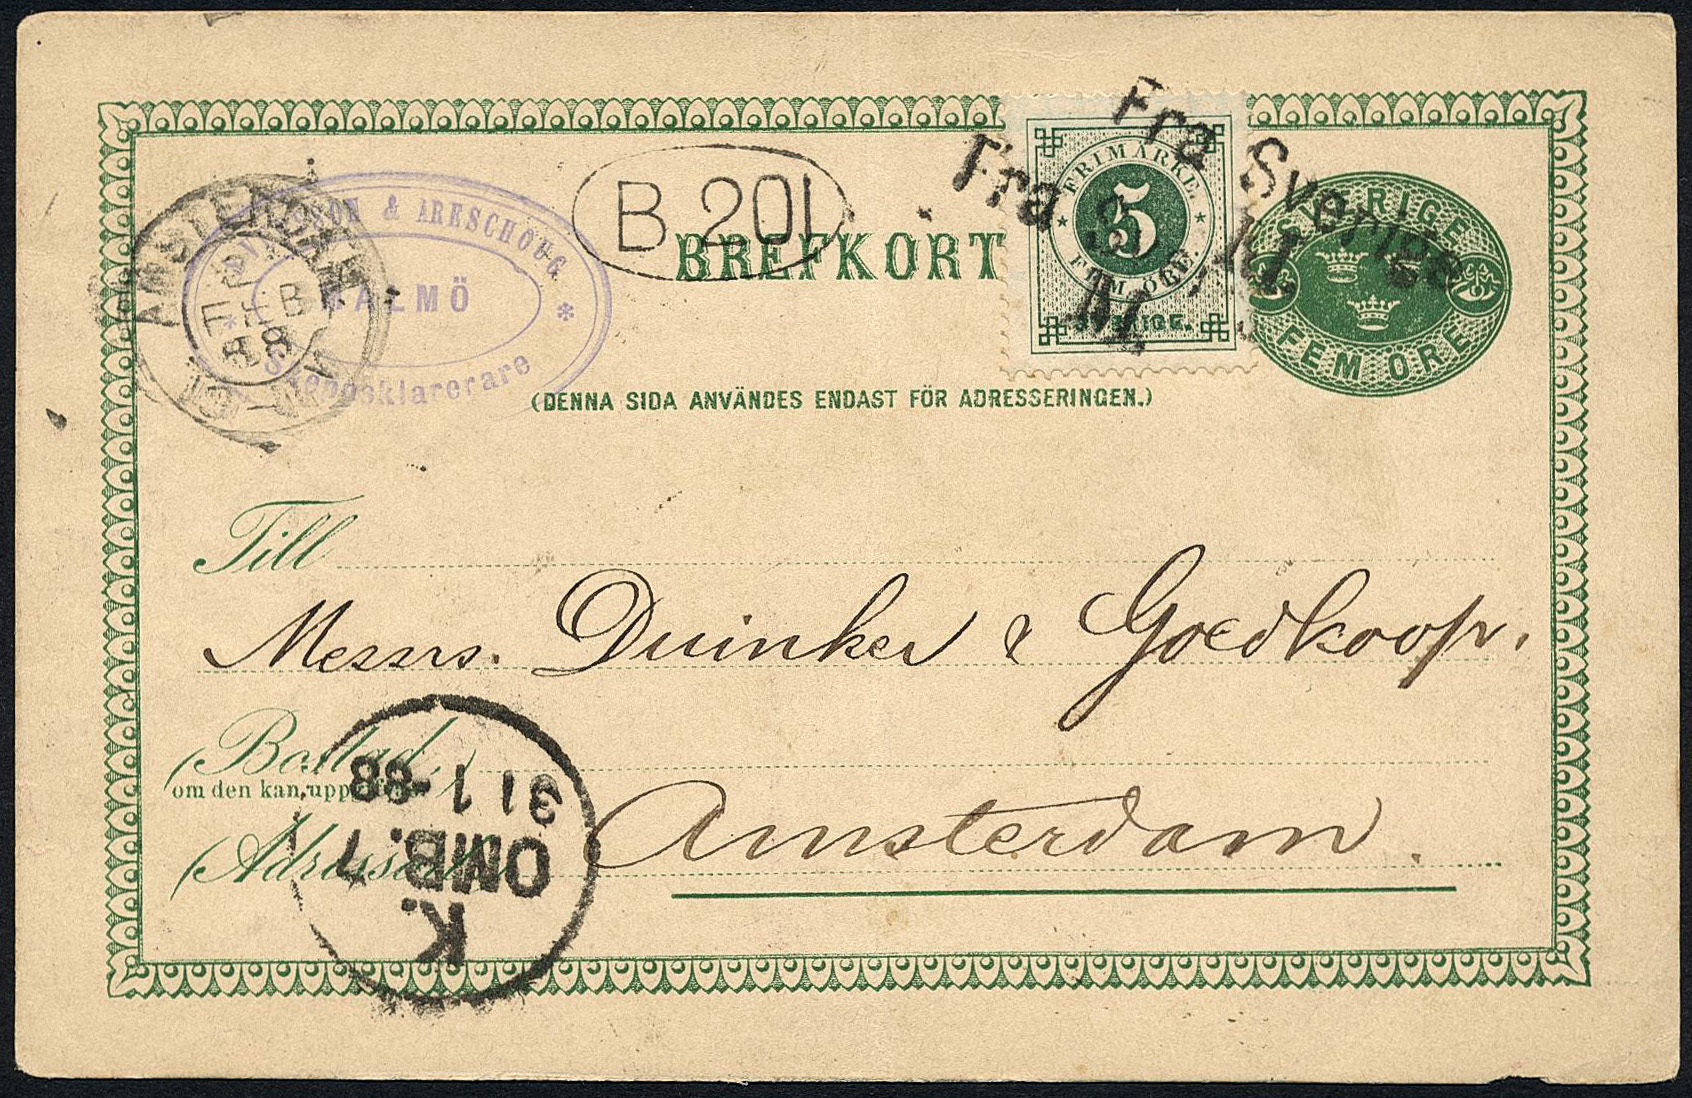 B. 201
BREFKORT
Fra Sverige
M.
Fra
M.
FRIMÄRKE.
5
FEM ÖRE.
SVERIGE.
SVERIGE
FEM ÖRE
AMSTERDAM
FEB
88
& ARESCHOUG
MALMÖ
Skeppsklarerare
(DENNA SIDA ANVÄNDES ENDAST FÖR ADRESSERINGEN.)
Till
Messrs. Duinker & Goedkoop.
(Bostad)
om den kan
Amsterdam.
K.
OMB. 7
31 1 -88